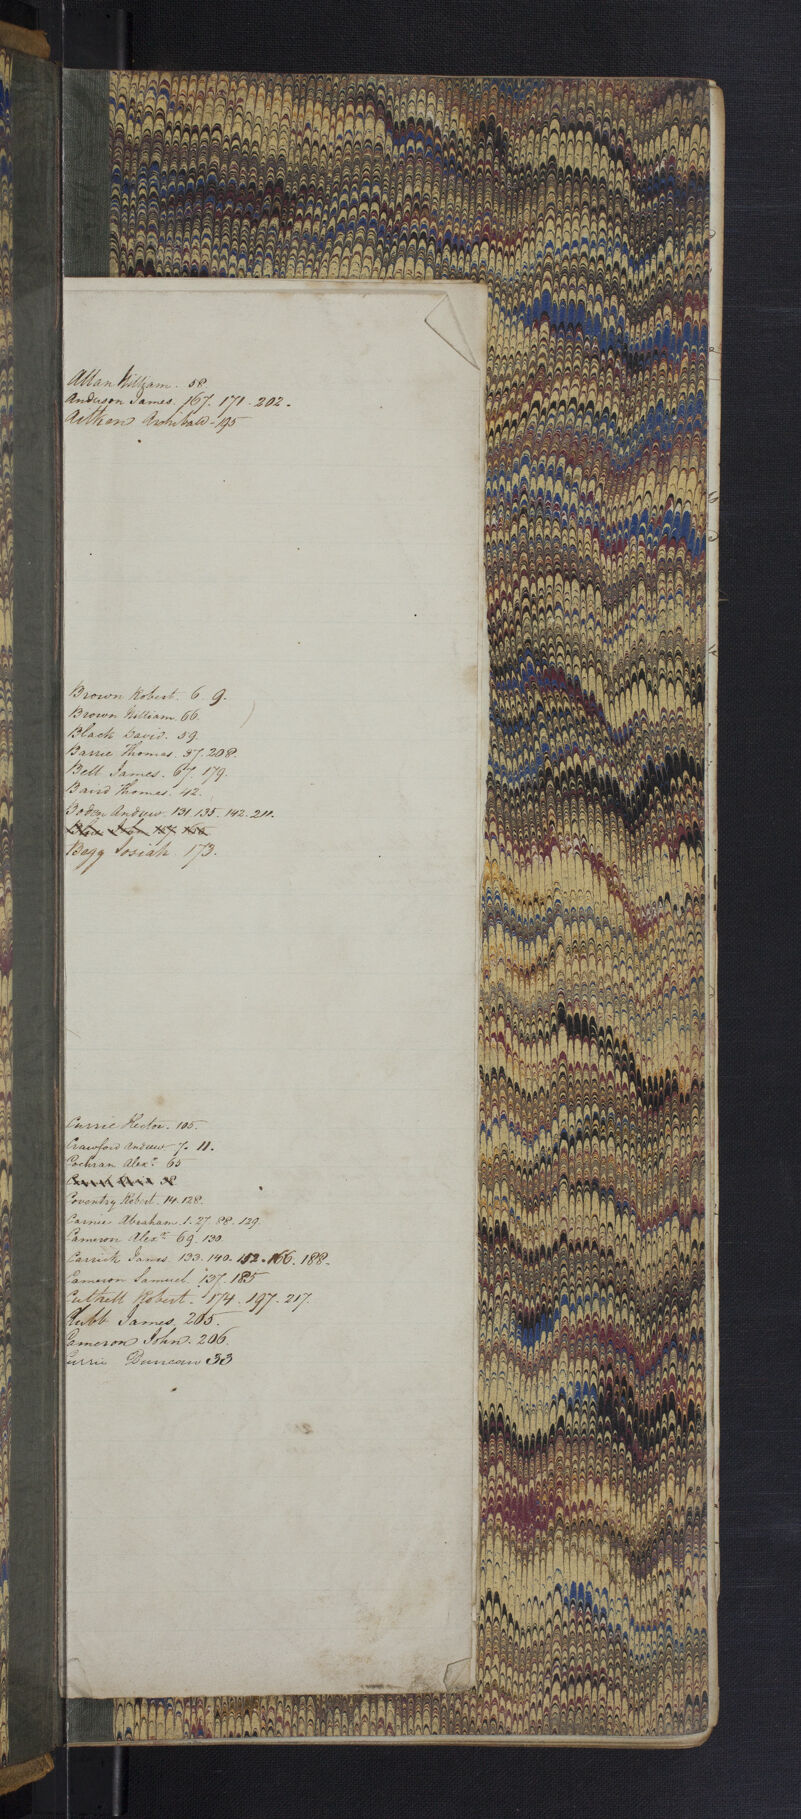 Allan William. 58.
Anderson James. 167. 171. 202.
Aitken Archibald - 195
Brown Robert. 6. 9.
Brown William. 66.
Black David. 59.
Barrie Thomas. 57. 208.
Bell James. 67. 179.
Baird Thomas. 42.
Boden Andrew. 131. 135. 142. 211.
Begg Josiah 173.
Currie Hector. 105.
Crawford Andrew 7. 11.
Cochran Alexr 65
Coventry Robert. 14. 128.
Carnie Abraham. 1. 27. 88. 129
Cameron Alexr 69. 130.
Carrick James. 133. 140. 152. 166. 188.
Cameron Samuel 137. 185
Cuthell Robert. 174. 197. 217.
Cubb James. 205.
Cameron John. 206.
Currie Duncan 33